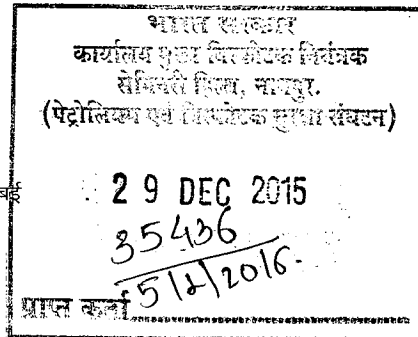 भारत सरकार
कार्यालय मुख्य विस्फोटक नियंत्रक
सेमिनरी हिल्स, नागपुर.
(पेट्रोलियम एवं विस्फोटक सुरक्षा संघटन)
29 DEC 2015
35436
5/2/2016.
प्राप्त कर्ता